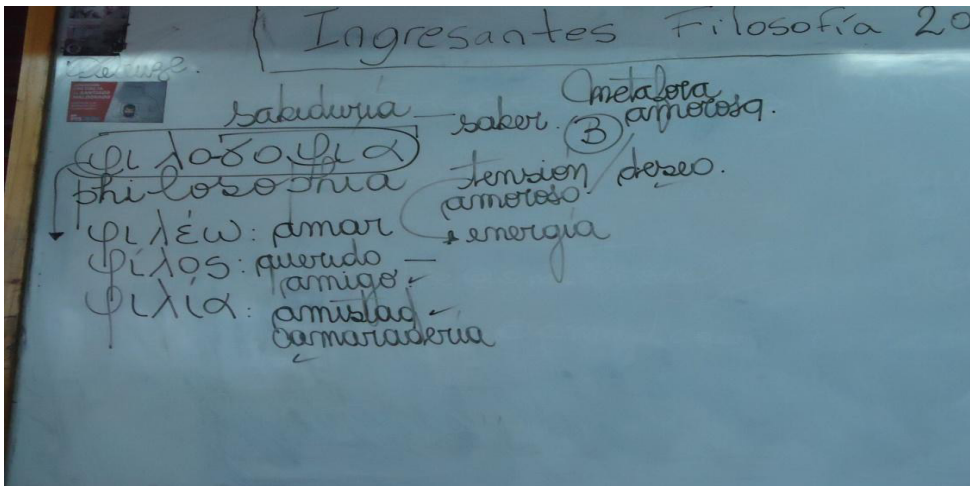 Ingresantes Filosofía 20
sabiduría — saber.
metáfora
amorosa.
B
φιλοσοφια
philosophia
tensión deseo.
amoroso
energía
φιλέω: amar
φίλος: querido —
amigo.
φιλία: amistad -
camaradería